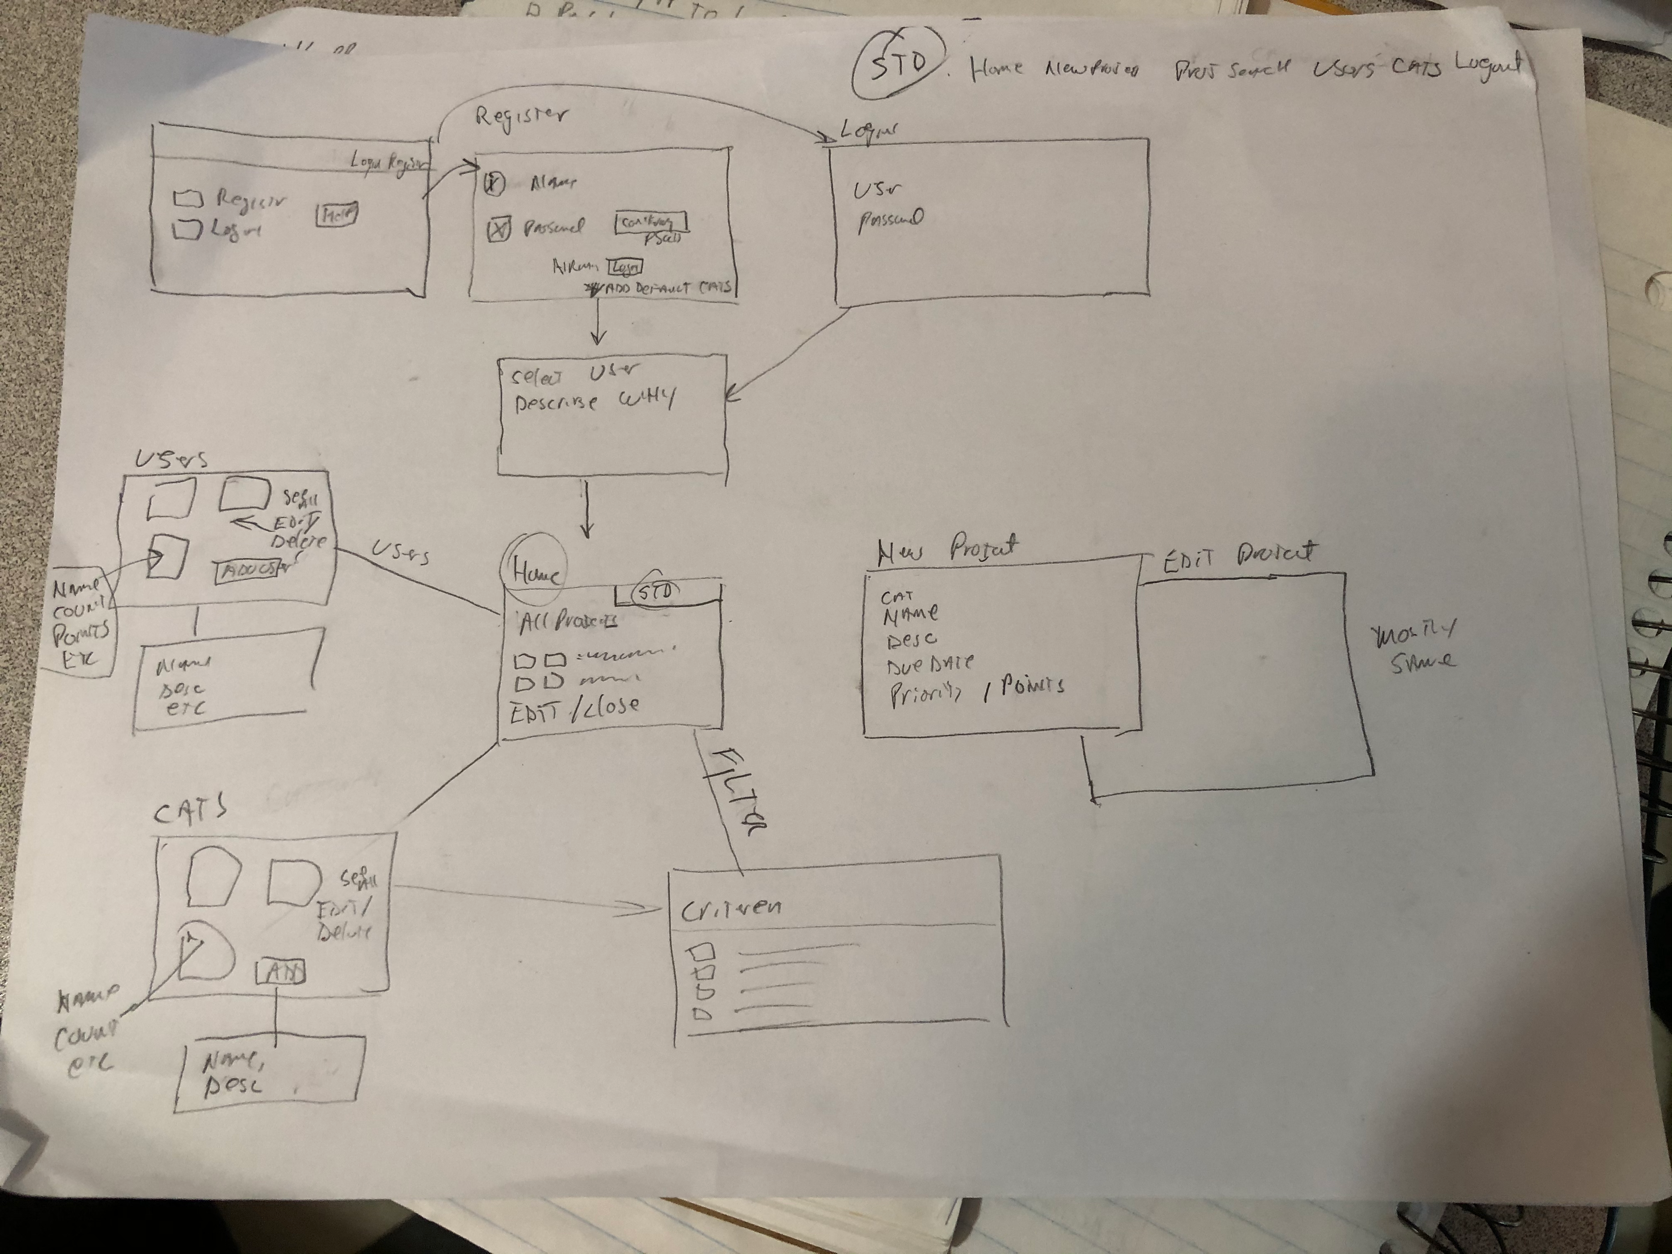 STD. Home New Project Proj Search Users CATS Logout
Register
Login
Login Register
Register
Login
Help
Name
Password
Login
* ADD DEFAULT CATS
User
Password
Select User
Describe WHY
Users
See All
EDIT/
Delete
ADD User
Name
COUNT
Points
ETC
Name
Desc
ETC
Users
Home
STD
All Projects
EDIT / Close
New Project
CAT
NAME
Desc
Due Date
Priority / Points
EDIT Project
Mostly
Same
FILTER
CATS
See All
EDIT/
Delete
ADD
Name
Count
etc
Name,
Desc